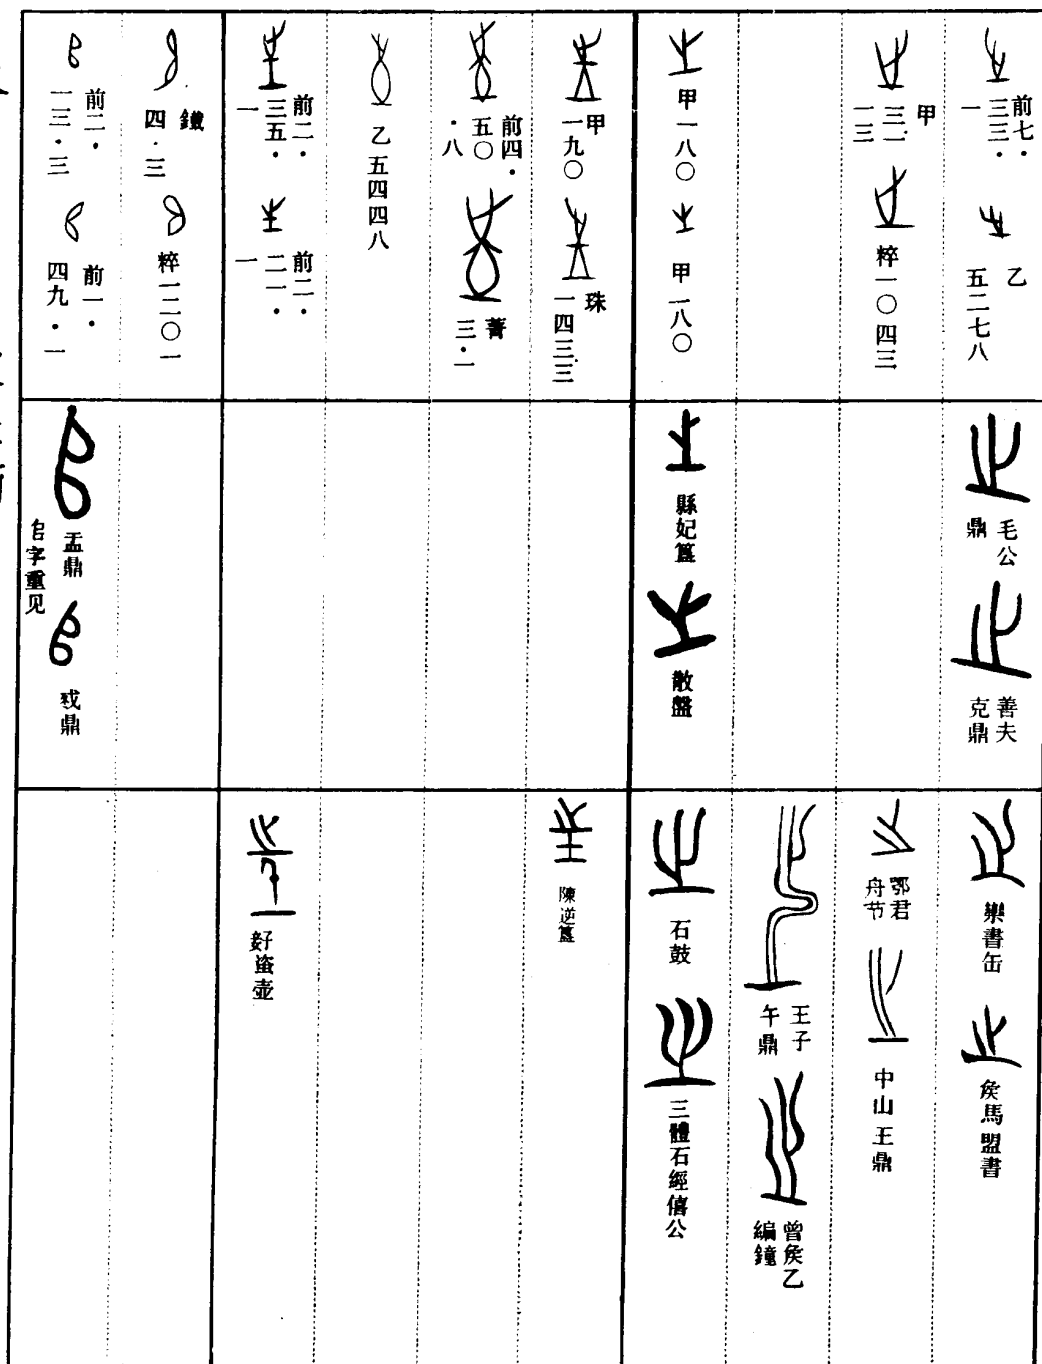 前七·
三三·
一
乙
五二七八
甲
三一
一三
粹一〇四三
甲一八〇
甲一八〇
甲
一九〇
珠
一四三三
前四·
五〇
·八
菁
三·一
乙五四四八
前二·
三五·
一
前二·
二一·
一
鐵
四·三
粹一二〇一
前二·
一三·三
前一·
四九·一
毛公
鼎
善夫
克鼎
縣妃簋
散盤
盂鼎
㠯字重见
㦰鼎
樂書缶
矦馬盟書
鄂君
舟节
中山王鼎
王子
午鼎
曾矦乙
編鐘
石鼓
三體石經僖公
陳逆簋
好盗壶